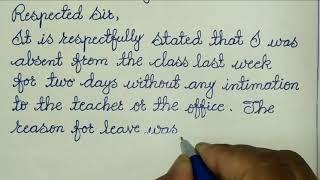 Respected Sir,
It is respectfully stated that I was
absent from the class last week
for two days without any intimation
to the teacher or the office. The
reason for leave was